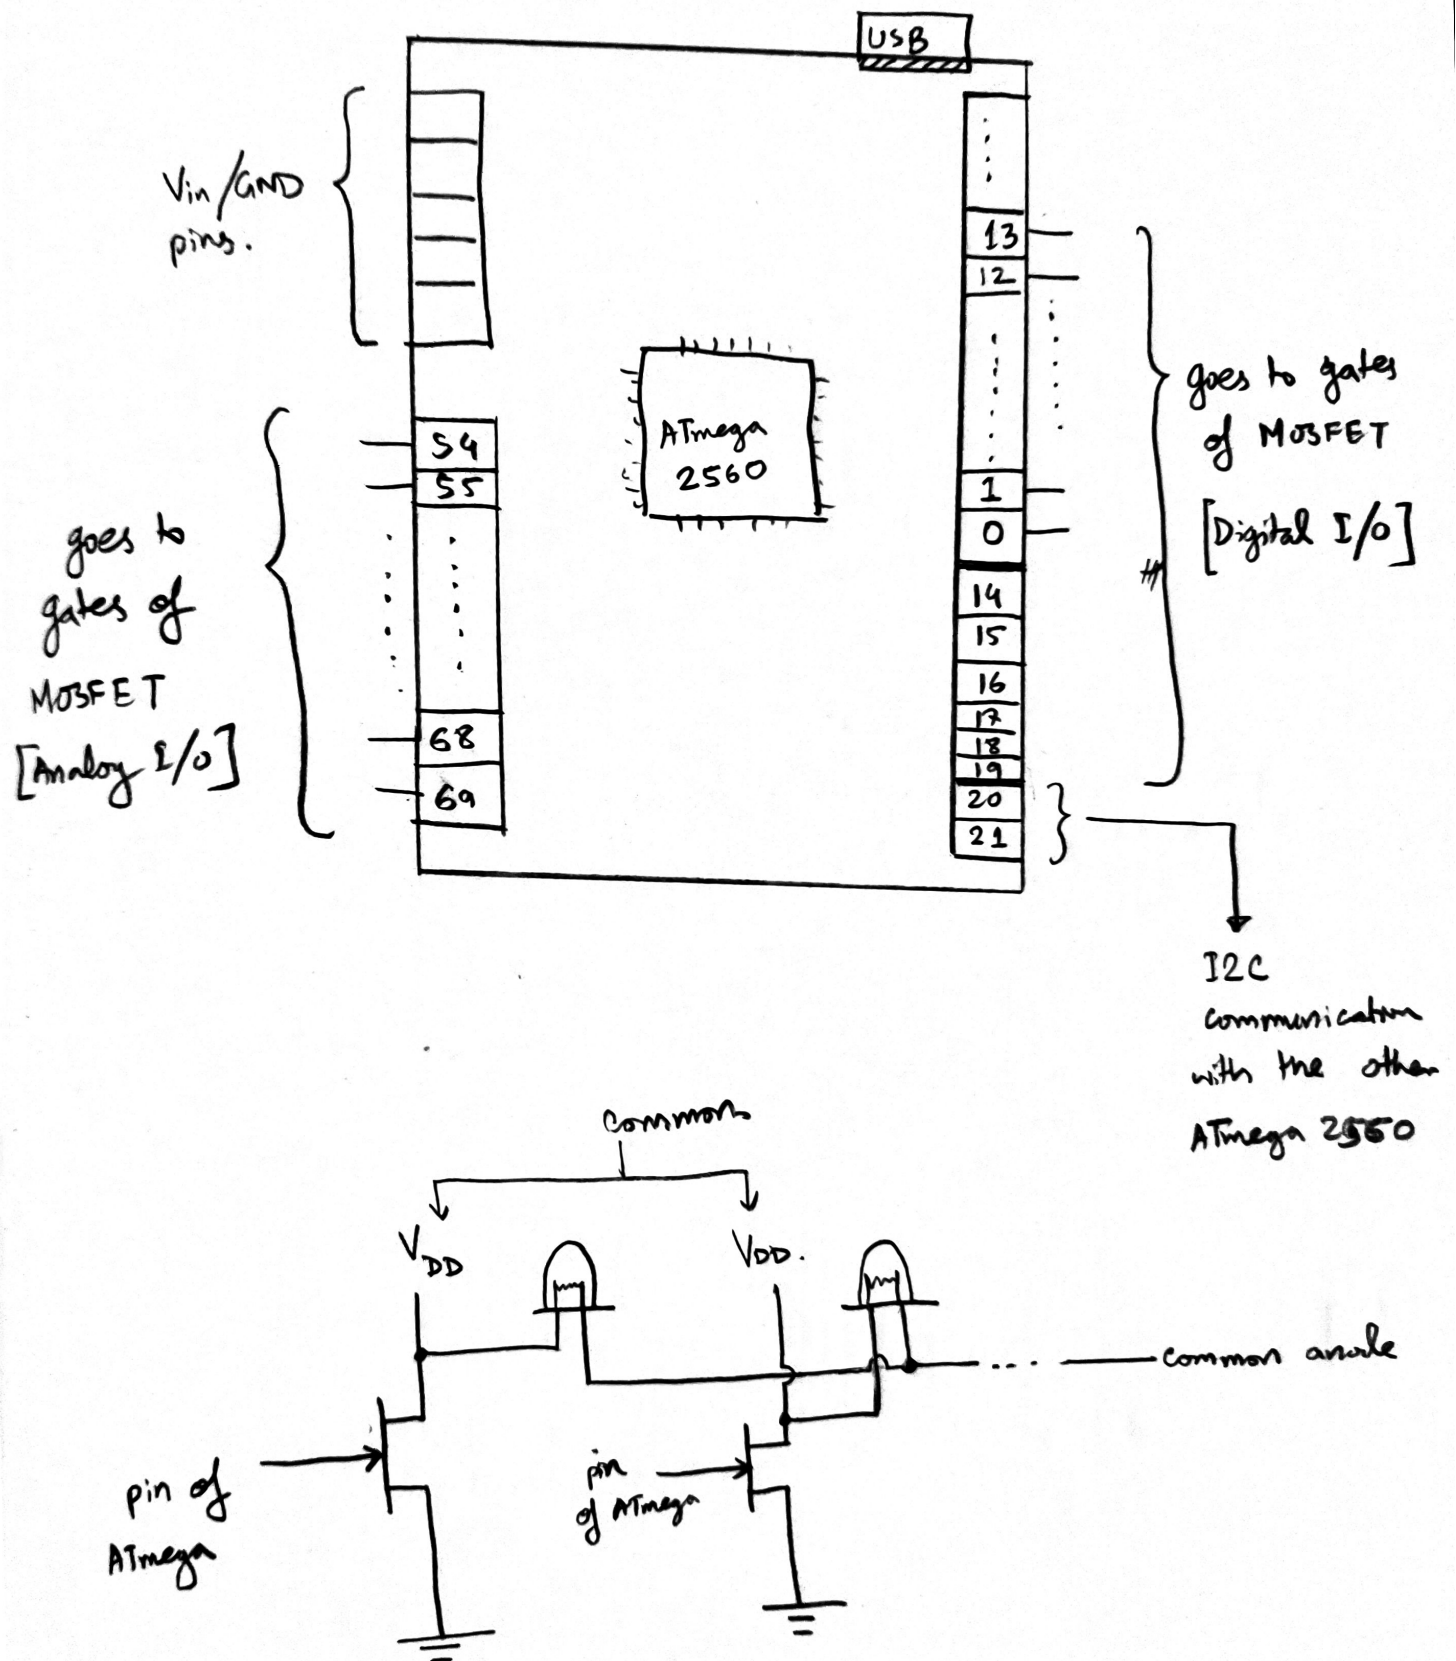 USB
Vin/GND
pins.
13
12
1
0
14
15
16
17
18
19
20
21
54
55
68
69
ATmega
2560
goes to gates
of MOSFET
[Digital I/O]
goes to
gates of
MOSFET
[Analog I/O]
I2C
communication
with the other
ATmega 2560
common
VDD
VDD.
common anode
pin of
ATmega
pin
of ATmega